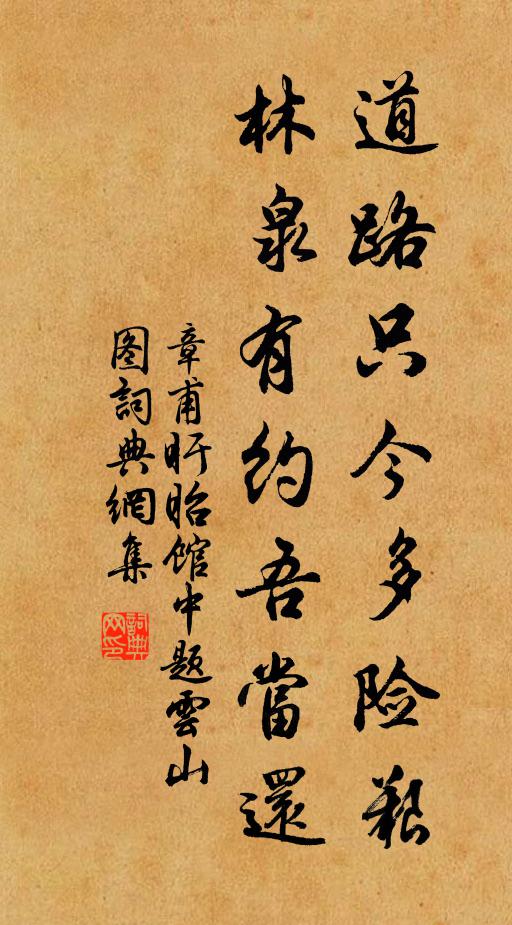 道路只今多险艱
林泉有约吾當還
章甫盱眙馆中题雲山
图詞典網集
詞典网印